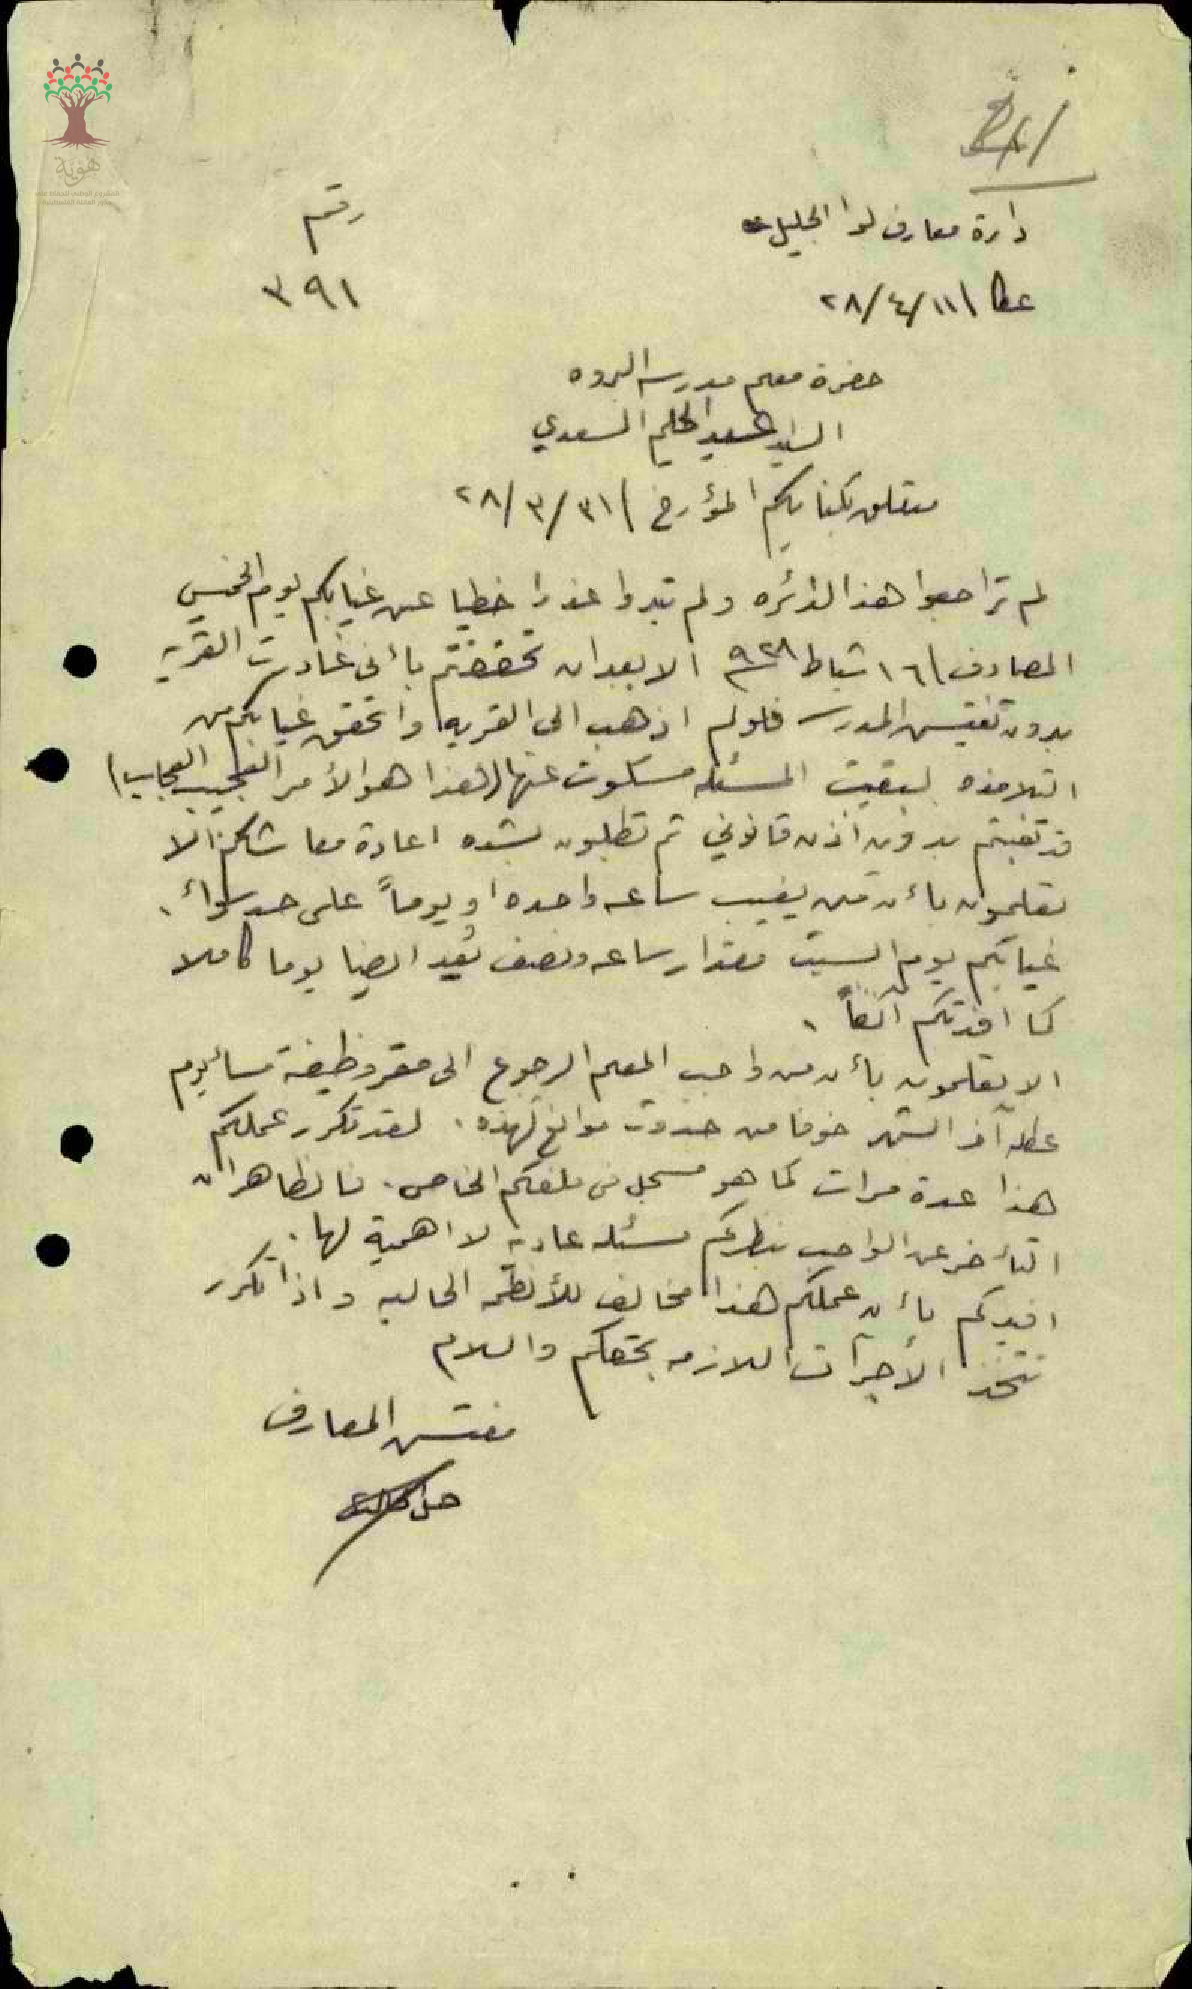 هوية
دارة معارف لوا الجليل
رقم
عكا ١١/٤/٢٨
٣٩١
حضرة معلم مدرسه البروه
السيد عبد الحليم السعدي
متعلق بكتابكم المؤرخ ٣١/٣/٢٨
لم تراجعوا هذه الدائره ولم تبدوا عذرا خطيا عن غيابكم يوم الخميس
المصادف ١٦ شباط ٩٢٨ الا بعد ان تحققتم بأني غادرت القريه
بدون تفتيش المدرسه فلو لم اذهب الى القريه واتحقق غيابكم من
التلامذه لبقيت المسئله مسكوت عنها (هذا هو الأمر العجيب العجاب)
قد تغيبتم بدون اذن قانوني ثم تطلبون بشده اعادة معاشكم الا
تعلمون بأن من يغيب ساعه واحده او يوماً على حد سواء.
غيابكم يوم السبت مقدار ساعه ونصف تعد ايضا يوما كاملا
كما افدتكم آنفاً.
الا تعلمون بأن من واجب المعلم الرجوع الى مقر وظيفته مسا يوم
عطلة آخر الشهر خوفا من حدوث موانع كهذه. لقد تكرر عملكم
هذا عدة مرات كما هو مسجل في ملفكم الخاص. فالظاهر ان
التأخر عن الواجب بنظركم مسئله عاديه لا اهمية لها.
افيدكم بأن عملكم هذا مخالف للأنظمه الحاليه واذا تكرر
نتخذ الأجرآت اللازمه بحقكم والسلام
مفتش المعارف